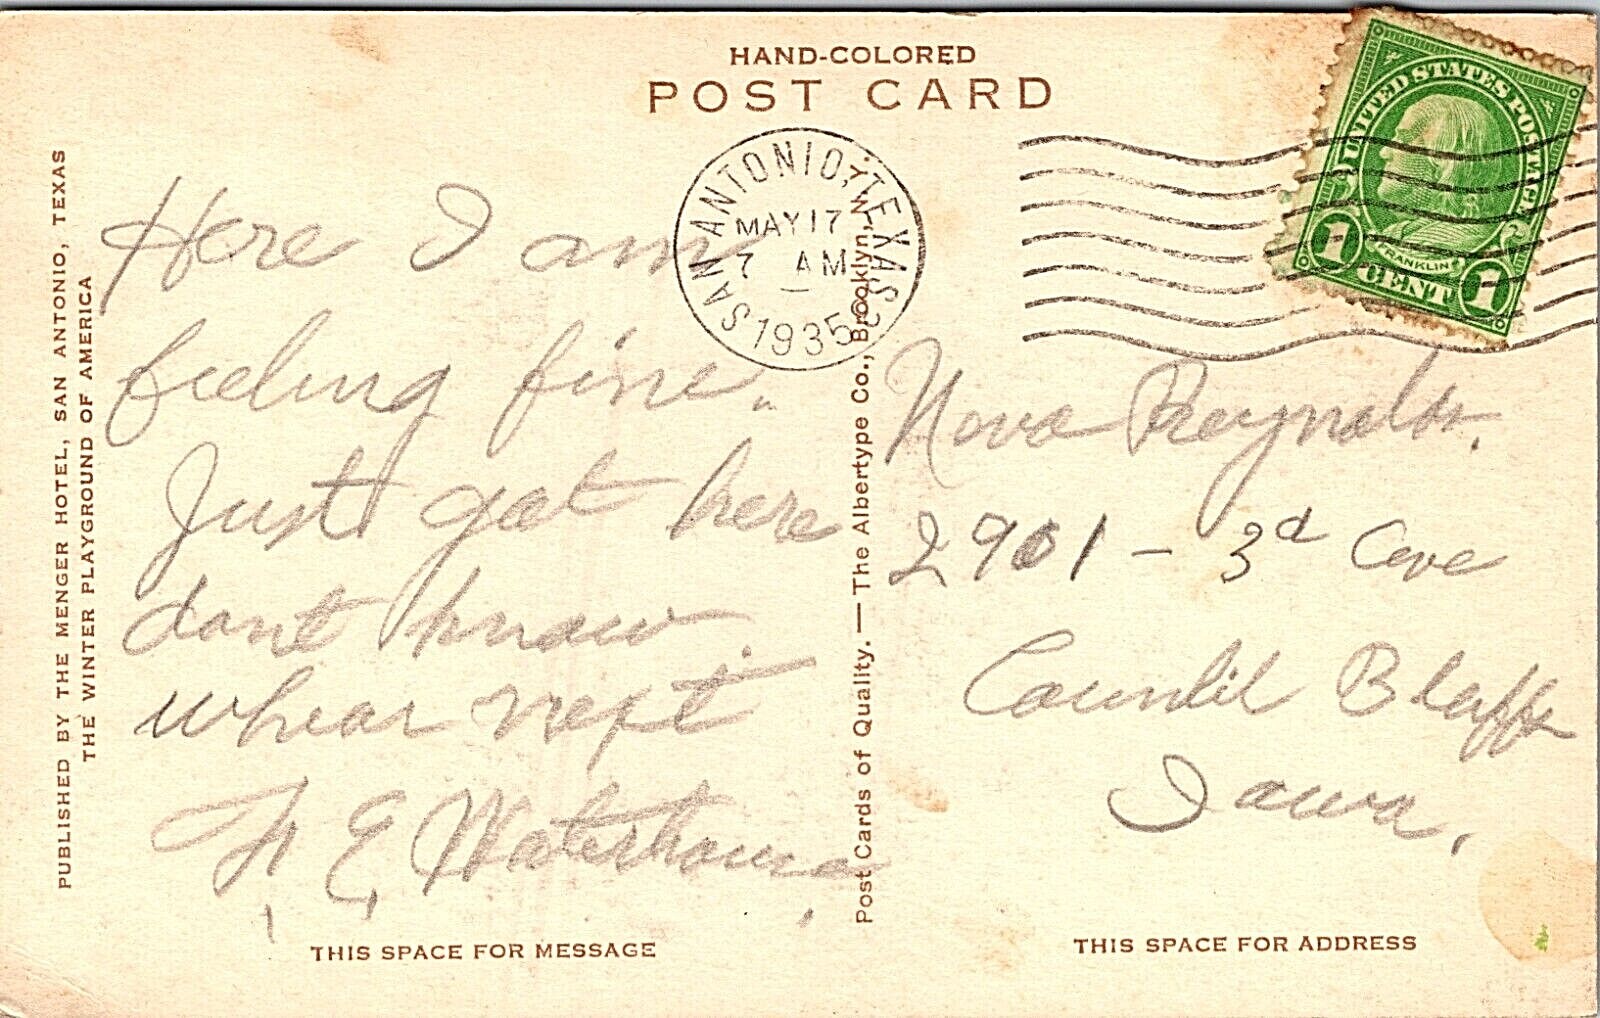 HAND-COLORED
POST CARD
PUBLISHED BY THE MENGER HOTEL, SAN ANTONIO, TEXAS
THE WINTER PLAYGROUND OF AMERICA
Here I am
feeling fine.
Just got here
dont know
whear next
E Waterhouse
THIS SPACE FOR MESSAGE
SAN ANTONIO, TEXAS
MAY 17
7 AM
1935
Post Cards of Quality. — The Albertype Co., Brooklyn, N.Y.
UNITED STATES POSTAGE
FRANKLIN
1 CENT 1
Nova Reynolds.
2901 - 3d Ave
Council Bluffs
Iowa.
THIS SPACE FOR ADDRESS